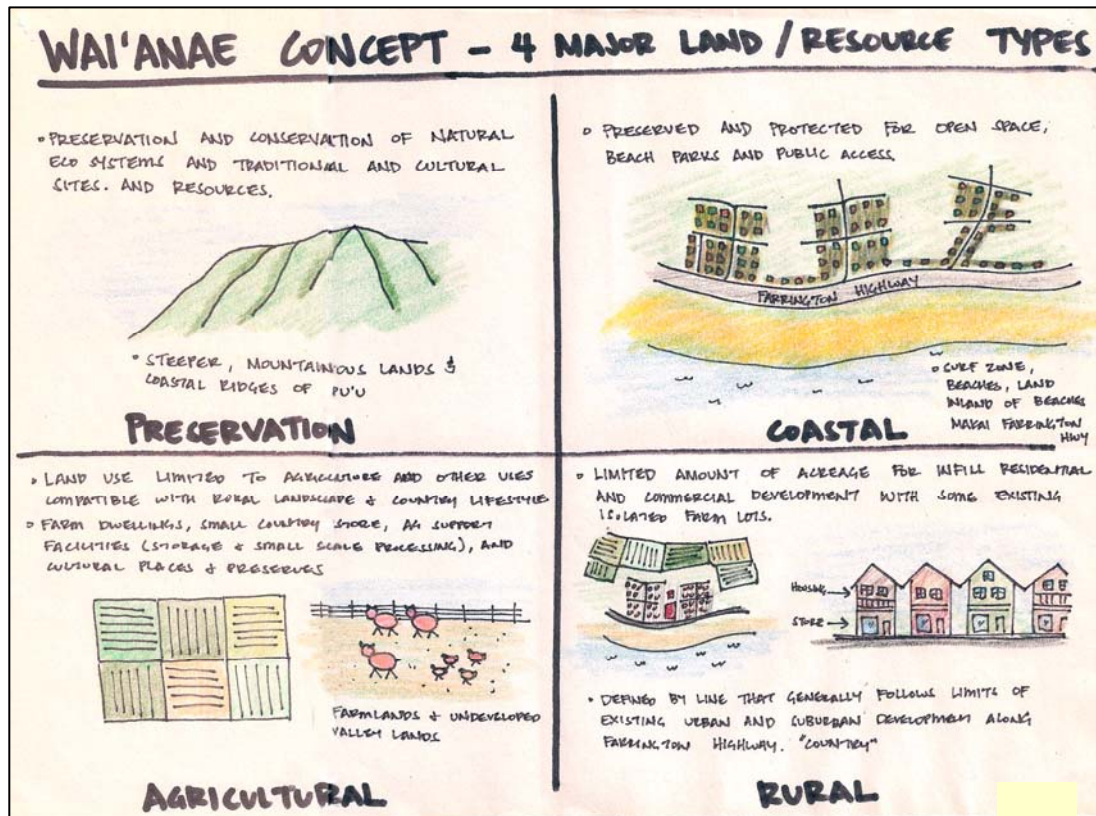 WAI'ANAE CONCEPT - 4 MAJOR LAND / RESOURCE TYPES
◦ PRESERVATION AND CONSERVATION OF NATURAL
ECO SYSTEMS AND TRADITIONAL AND CULTURAL
SITES. AND RESOURCES.
◦ STEEPER, MOUNTAINOUS LANDS &
COASTAL RIDGES OF PU'U
PRESERVATION
◦ PRESERVED AND PROTECTED FOR OPEN SPACE,
BEACH PARKS AND PUBLIC ACCESS.
FARRINGTON HIGHWAY
◦ SURF ZONE,
BEACHES, LAND
INLAND OF BEACHES
MAKAI FARRINGTON
HWY
COASTAL
◦ LAND USE LIMITED TO AGRICULTURE AND OTHER USES
COMPATIBLE WITH RURAL LANDSCAPE & COUNTRY LIFESTYLE
◦ FARM DWELLINGS, SMALL COUNTRY STORE, AG SUPPORT
FACILITIES (STORAGE & SMALL SCALE PROCESSING), AND
CULTURAL PLACES & PRESERVES
FARMLANDS & UNDEVELOPED
VALLEY LANDS
AGRICULTURAL
◦ LIMITED AMOUNT OF ACREAGE FOR INFILL RESIDENTIAL
AND COMMERCIAL DEVELOPMENT WITH SOME EXISTING
ISOLATED FARM LOTS.
HOUSING
STORE
◦ DEFINED BY LINE THAT GENERALLY FOLLOWS LIMITS OF
EXISTING URBAN AND SUBURBAN DEVELOPMENT ALONG
FARRINGTON HIGHWAY. "COUNTRY"
RURAL